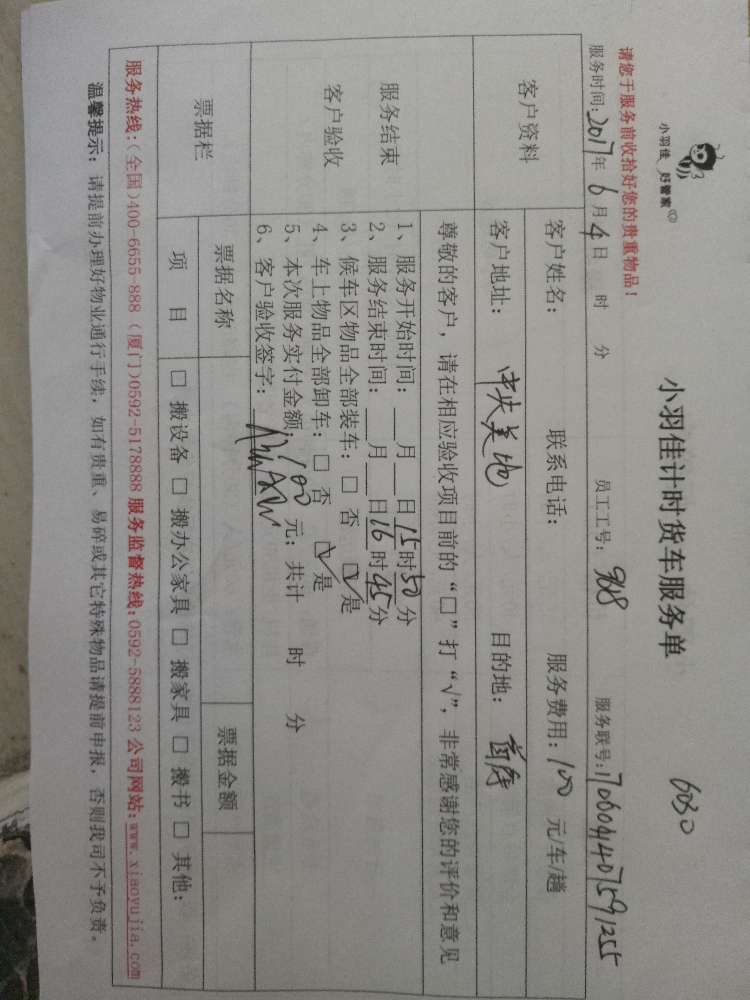 小羽佳 好管家
小羽佳计时货车服务单
6030
请您于服务前收拾好您的贵重物品！
服务时间：2017年6月4日 时 分 员工工号：988 服务联号：170604407591255
客户资料
客户姓名： 联系电话： 服务费用：100元/车/趟
客户地址：中央美地 目的地：
服务结束
客户验收
尊敬的客户，请在相应验收项目前的“□”打“√”，非常感谢您的评价和意见
1、服务开始时间：__月__日15时50分
2、服务结束时间：__月__日16时45分
3、候车区物品全部装车：□ 否 ☑是
4、车上物品全部卸车：□ 否 ☑是
5、本次服务实付金额：100元；共计 时 分
6、客户验收签字：
票据栏
票据名称 票据金额
项 目 □ 搬设备 □ 搬办公家具 □ 搬家具 □ 搬书 □ 其他：
服务热线：（全国）400-6655-888（厦门）0592-5178888 服务监督热线：0592-5888123 公司网站：www.xiaoyujia.com
温馨提示：请提前办理好物业通行手续，如有贵重、易碎或其它特殊物品请提前申报，否则我司不予负责。